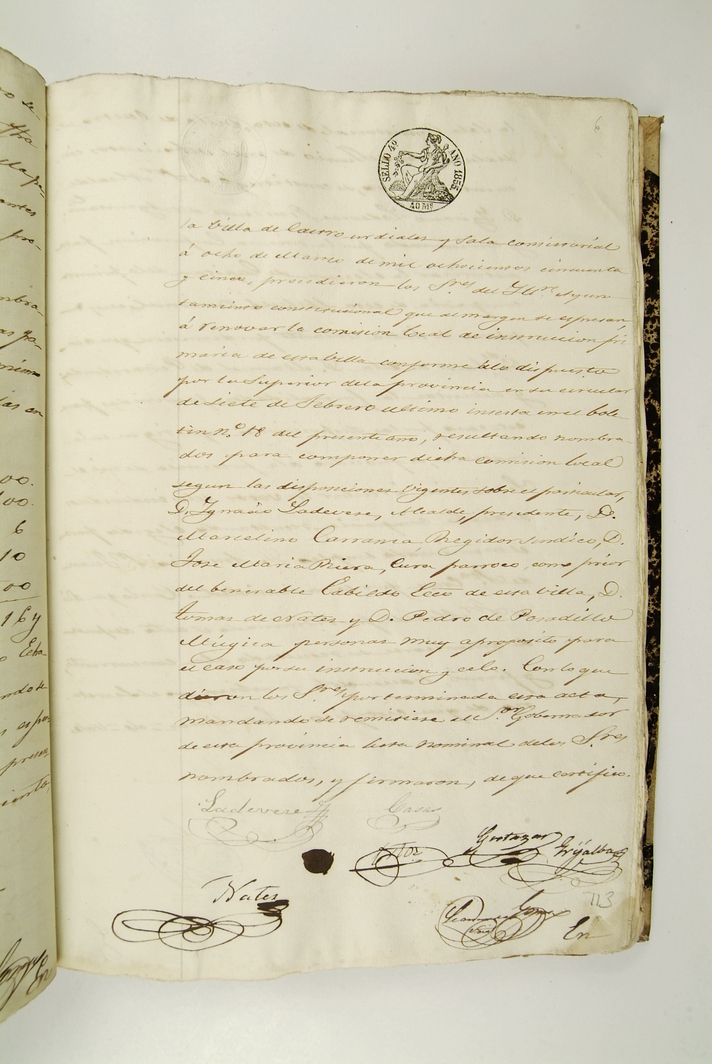 6
SELLO 4º AÑO 1855.
40 Ms
la Villa de Castrourdiales y Sala consistorial
á ocho de Marzo de mil ochocientos cincuenta
y cinco, presidieron los S.res del Ylt.e Ayun-
tamiento constitucional que al margen se espresan
á renovar la comision local de instruccion pri
maria de esta villa conforme á lo dispuesto
por la Superior de la provincia en su circular
de siete de Febrero ultimo inserta en el bole
tin n.º 18 del presente ano, resultando nombra
dos para componer dicha comision local
segun las disposiciones vigentes sobre el particular,
D. Ygnacio Ladevese, Alcalde, presidente, D.
Marcelino Carranza Regidor sindico, D.
Jose Maria Piera, Cura parroco, como prior
del benerable Cabildo Ecco de esta villa, D.
Tomas de Nates y D. Pedro de Posadillo
Mugica personas muy aproposito para
el caso por su instruccion y celo. Con lo que
dieron los S.res por terminada esta acta,
mandando se remitiese al S.or Gobernador
de esta provincia lista nominal de los S.res
nombrados, y firmaron, de que certifico.
Ladevese Casas
Gortazar Grijalba
Nates
113
En